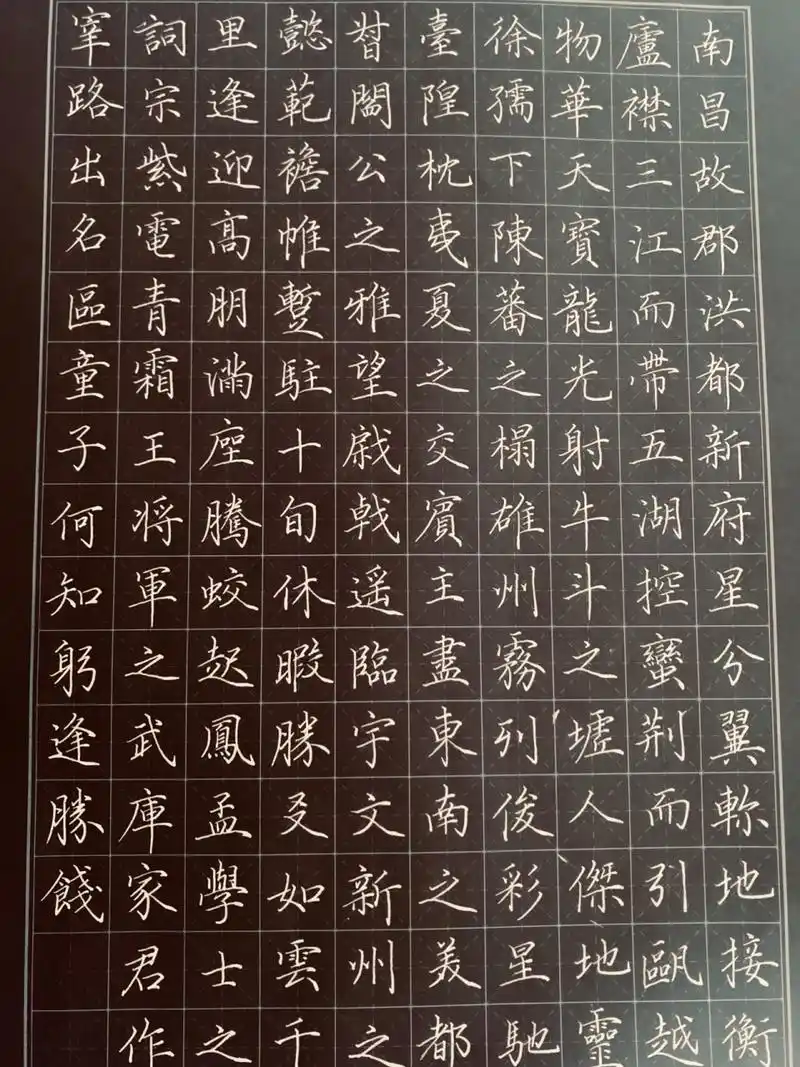 南昌故郡洪都新府星分翼軫地接衡
廬襟三江而帶五湖控蠻荆而引甌越
物華天寶龍光射牛斗之墟人傑地靈
徐孺下陳蕃之榻雄州霧列俊彩星馳
臺隍枕夷夏之交賓主盡東南之美都
督閻公之雅望戚戟遥臨宇文新州之
懿範襜帷暫駐十旬休暇勝友如雲千
里逢迎高朋滿座騰蛟起鳳孟學士之
詞宗紫電青霜王将軍之武庫家君作
宰路出名區童子何知躬逢勝餞